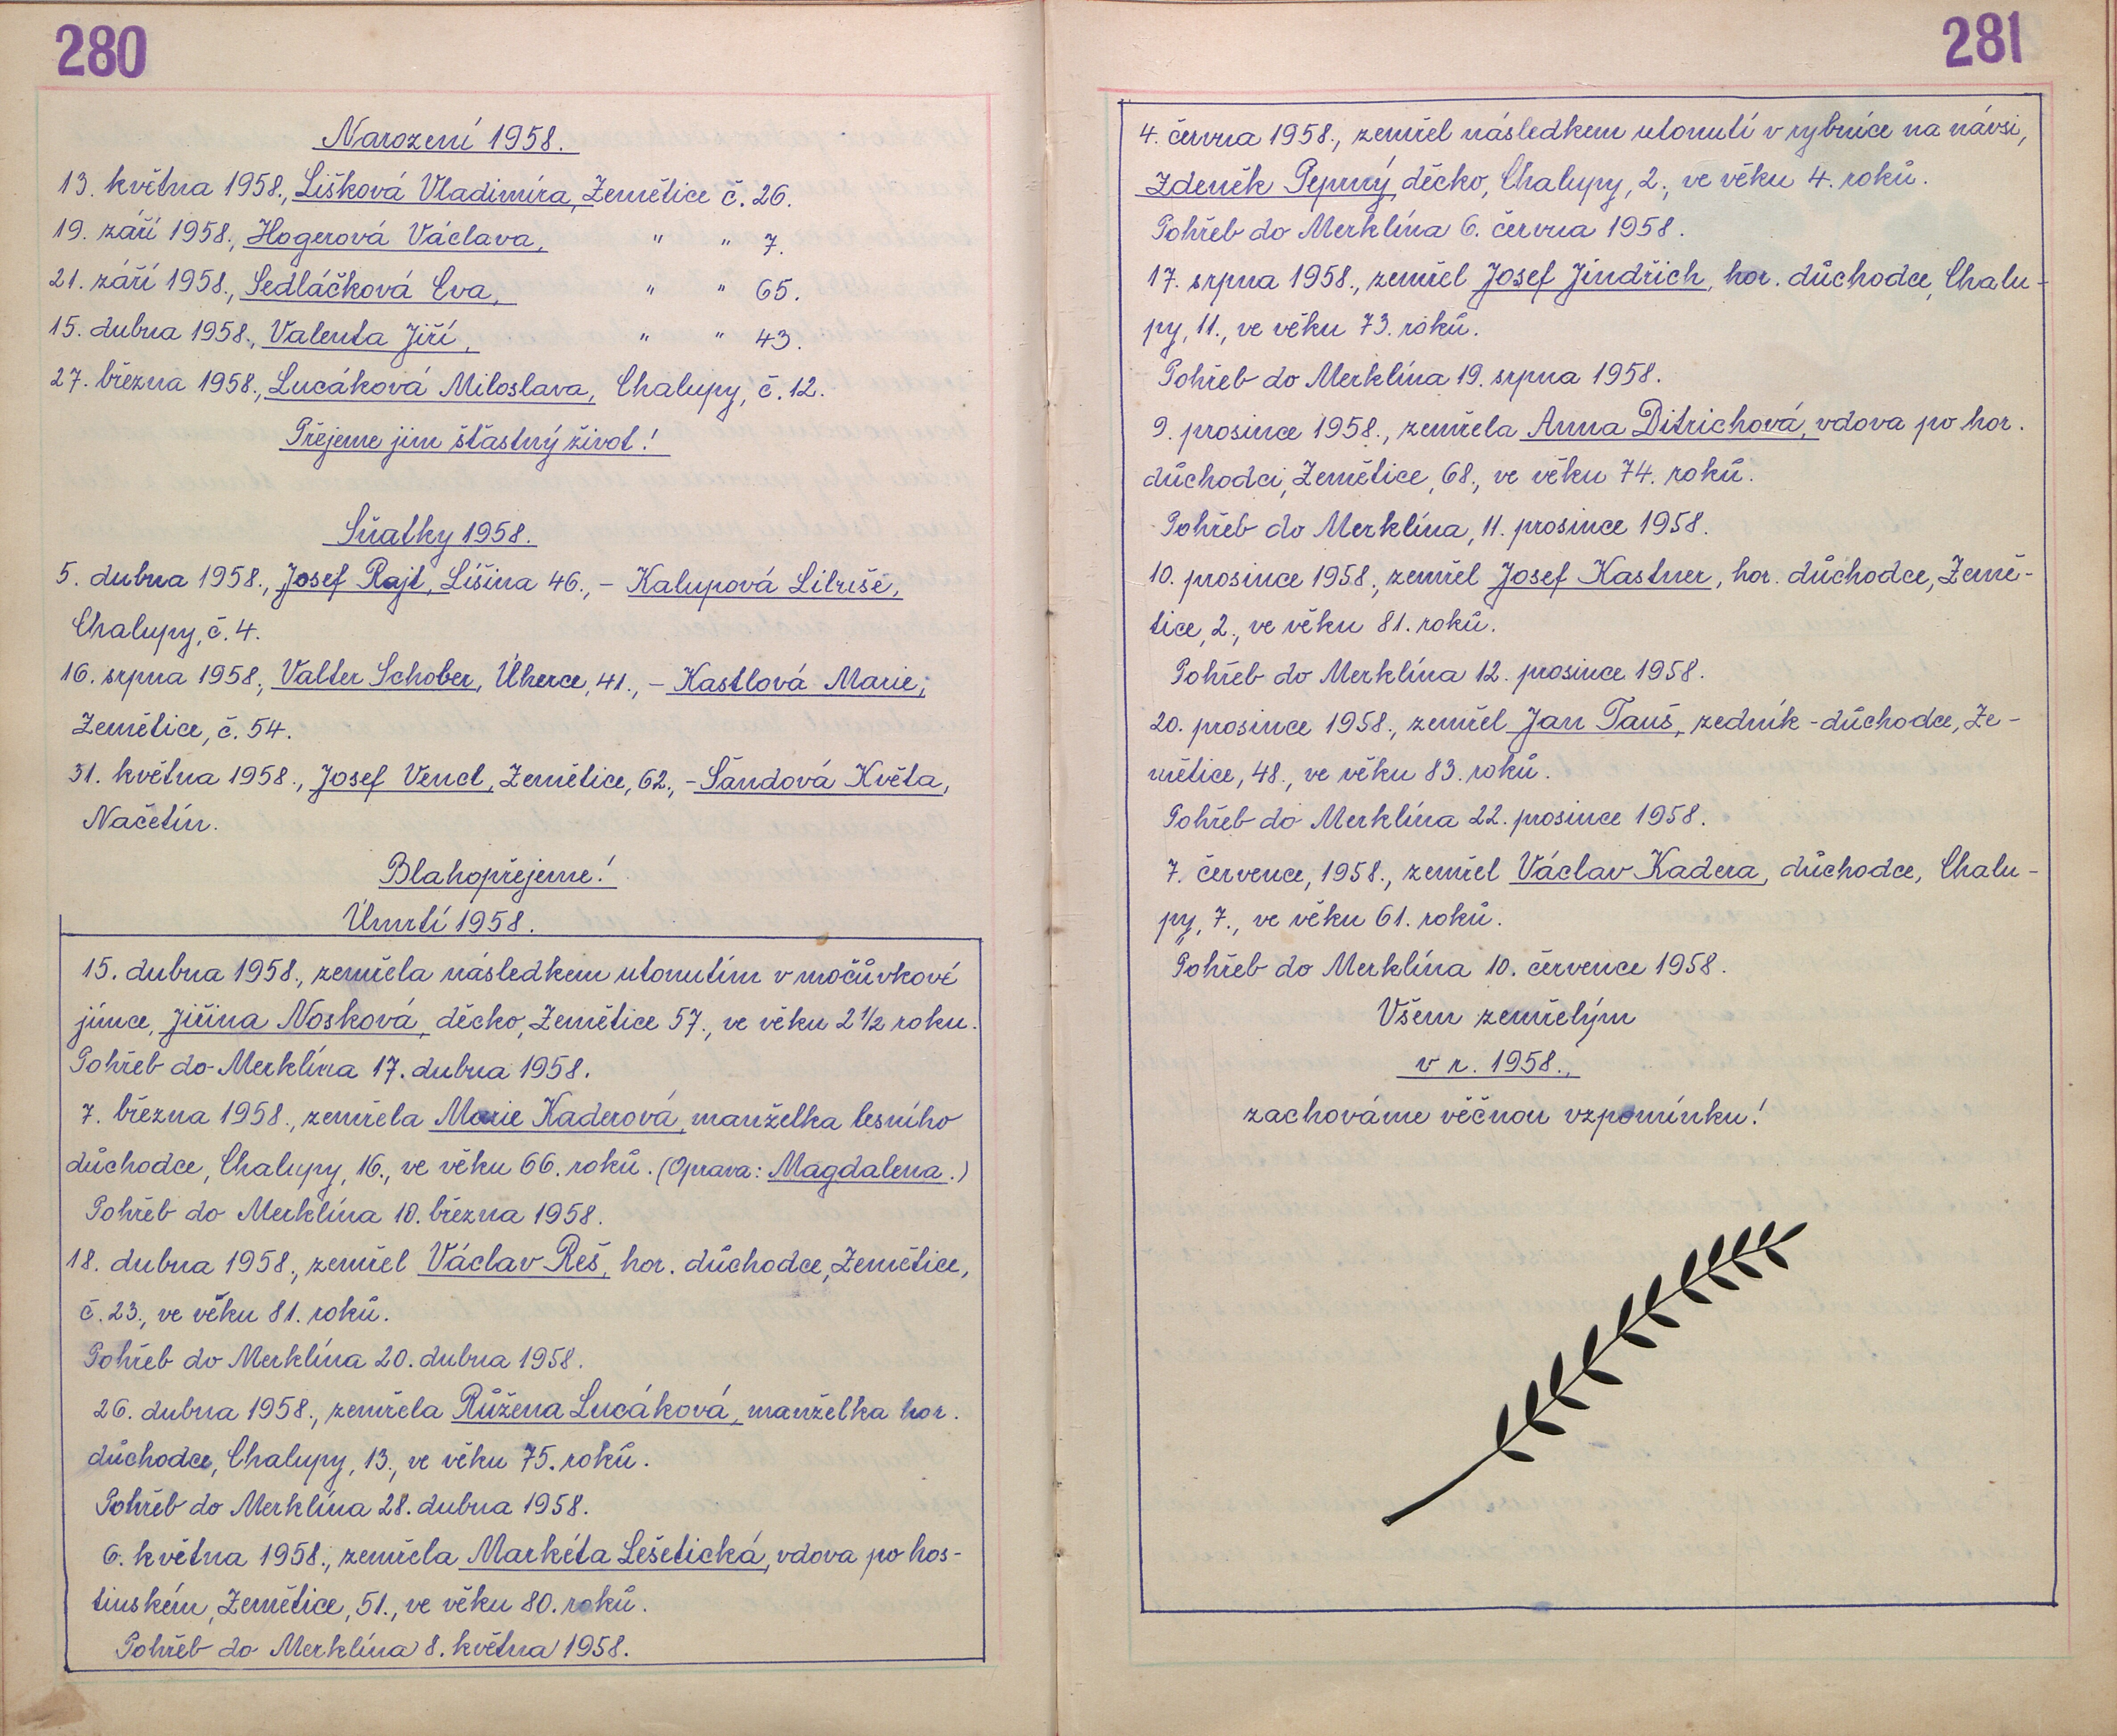 280
Narození 1958.
13. května 1958., Lišková Vladimíra, Zemětice č. 26.
19. září 1958., Hogerová Václava, " " 7.
21. září 1958., Sedláčková Eva, " " 65.
15. dubna 1958., Valenta Jiří, " " 43.
27. března 1958., Lucáková Miloslava, Chalupy, č. 12.
Přejeme jim šťastný život!
Sňatky 1958.
5. dubna 1958., Josef Rajt, Líšina 46., – Kalupová Libuše,
Chalupy, č. 4.
16. srpna 1958., Valter Schober, Úherce, 41., – Kastlová Marie,
Zemětice, č. 54.
31. května 1958., Josef Vencl, Zemětice, 62., – Šandová Květa,
Načetín.
Blahopřejeme!
Úmrtí 1958.
15. dubna 1958., zemřela následkem utonutím v močůvkové
jímce, Jiřina Nosková, děcko, Zemětice 57., ve věku 2 1/2 roku.
Pohřeb do Merklína 17. dubna 1958.
7. března 1958., zemřela Marie Kaderová, manželka lesního
důchodce, Chalupy, 16., ve věku 66. roků. (Oprava: Magdalena.)
Pohřeb do Merklína 10. března 1958.
18. dubna 1958., zemřel Václav Reš, hor. důchodce, Zemětice,
č. 23., ve věku 81. roků.
Pohřeb do Merklína 20. dubna 1958.
26. dubna 1958., zemřela Růžena Lucáková, manželka hor.
důchodce, Chalupy, 13., ve věku 75. roků.
Pohřeb do Merklína 28. dubna 1958.
6. května 1958., zemřela Markéta Lešetická, vdova po hos-
tinském, Zemětice, 51., ve věku 80. roků.
Pohřeb do Merklína 8. května 1958.
281
4. června 1958., zemřel následkem utonutí v rybníce na návsi,
Zdeněk Peprný, děcko, Chalupy, 2., ve věku 4. roků.
Pohřeb do Merklína 6. června 1958.
17. srpna 1958., zemřel Josef Jindřich, hor. důchodce, Chalu-
py, 11., ve věku 73. roků.
Pohřeb do Merklína 19. srpna 1958.
9. prosince 1958., zemřela Anna Ditrichová, vdova po hor.
důchodci, Zemětice, 68., ve věku 74. roků.
Pohřeb do Merklína, 11. prosince 1958.
10. prosince 1958., zemřel Josef Kastner, hor. důchodce, Země-
tice, 2., ve věku 81. roků.
Pohřeb do Merklína 12. prosince 1958.
20. prosince 1958., zemřel Jan Tauš, zedník - důchodce, Ze-
mětice, 48., ve věku 83. roků.
Pohřeb do Merklína 22. prosince 1958.
7. července, 1958., zemřel Václav Kadera, důchodce, Chalu-
py, 7., ve věku 61. roků.
Pohřeb do Merklína 10. července 1958.
Všem zemřelým
v r. 1958.,
zachováme věčnou vzpomínku!